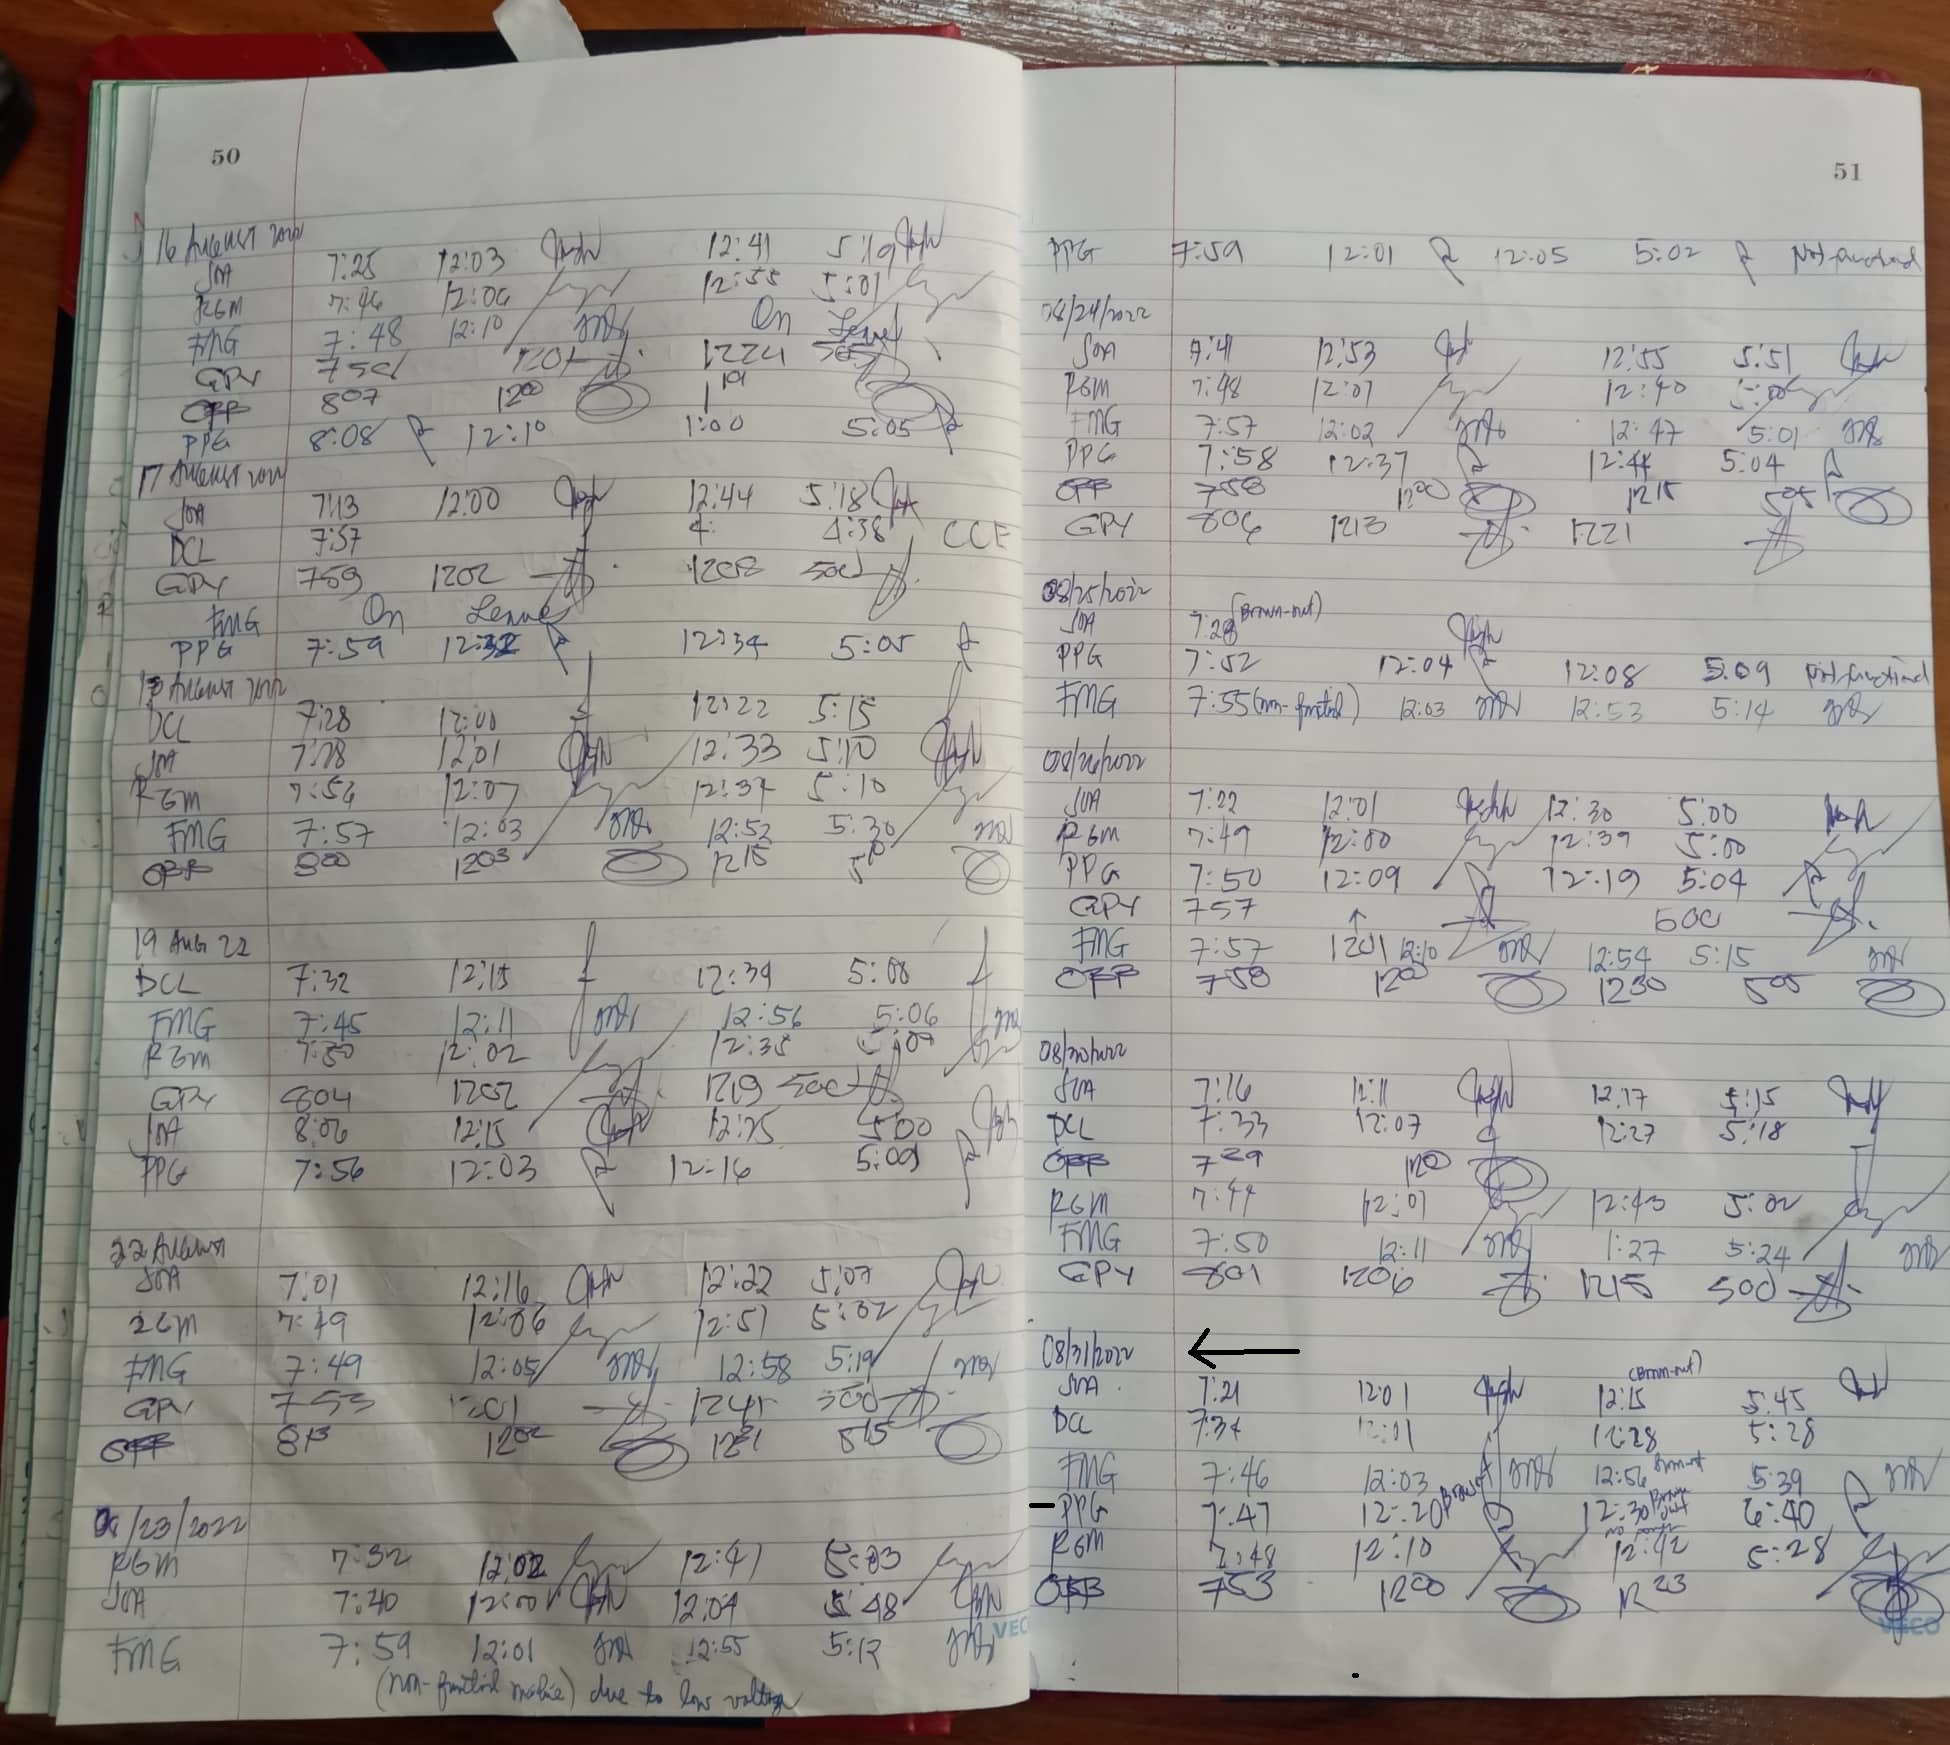 50
16 August 2022
JOA 7:25 12:03 12:41 5:19
RGM 7:46 12:06 12:55 5:01
FMG 7:48 12:10 On Leave
GPY 1201 1224
OFF 807 1200 1
PPG 8:08 12:10 1:00 5:05
17 August 2022
JOA 7:13 12:00 12:44 5:18
DCL 7:57 4: 4:38 CCE
GPY 759 1202 1208 500
FMG On Leave
PPG 7:59 12:32 12:34 5:05
August 2022
DCL 7:28 12:00 12:22 5:15
JOA 7:28 12:01 12:33 5:10
RGM 7:54 12:07 12:37 5:10
FMG 7:57 12:03 12:52 5:30
OFF 800 1203 1215 510
19 Aug 22
DCL 7:32 12:15 12:39 5:08
FMG 7:45 12:11 12:56 5:06
RGM 7:50 12:02 12:38
GPY 804 1202 1219 500
JOA 8:06 12:15 12:25 5:00
PPG 7:56 12:03 12:16 5:09
22 August
JOA 7:01 12:16 12:22 5:07
RGM 7:49 12:06 12:51 5:02
FMG 7:49 12:05 12:58 5:19
GPY 753 1201 1245 500
OFF 813 1202 515
/23/2022
RGM 7:32 12:02 12:41 5:03
JOA 7:40 12:00 12:04 5:48
FMG 7:59 12:01 12:55 5:12
(non-functional machine) due to low voltage
VECO
51
PPG 7:59 12:01 12:05 5:02 Not functional
08/24/2022
JOA 7:41 12:53 12:55 5:51
RGM 7:48 12:01 12:40 5:00
FMG 7:57 12:02 12:47 5:01
PPG 7:58 12:37 12:44 5:04
OFF 758 1200 1215 505
GPY 806 1213 1221
08/25/2022
JOA 7:28 (Brown-out)
PPG 7:52 12:04 12:08 5:09 Not functional
FMG 7:55 (non-functional) 12:03 12:53 5:14
08/26/2022
JOA 7:22 12:01 12:30 5:00
RGM 7:49 12:00 12:39 5:00
PPG 7:50 12:09 12:19 5:04
GPY 757 ↑ 500
FMG 7:57 1201 12:10 12:54 5:15
OFF 758 1200 1230 505
08/30/2022
JOA 7:16 12:11 12:17 5:15
DCL 7:33 12:07 12:27 5:18
OFF 739 1200
RGM 7:44 12:01 12:43 5:02
FMG 7:50 12:11 1:27 5:24
GPY 801 1206 1215 500
08/31/2022 ←
(Brown-out)
JOA 7:21 12:01 12:15 5:45
DCL 7:34 12:01 12:28 5:28
FMG 7:46 12:03 12:56 Brown-out 5:39
PPG 7:47 12:20 Brown 12:30 Brown out 6:40
RGM 7:48 12:10 12:42 5:28
OFF 753 1200 1223
VECO